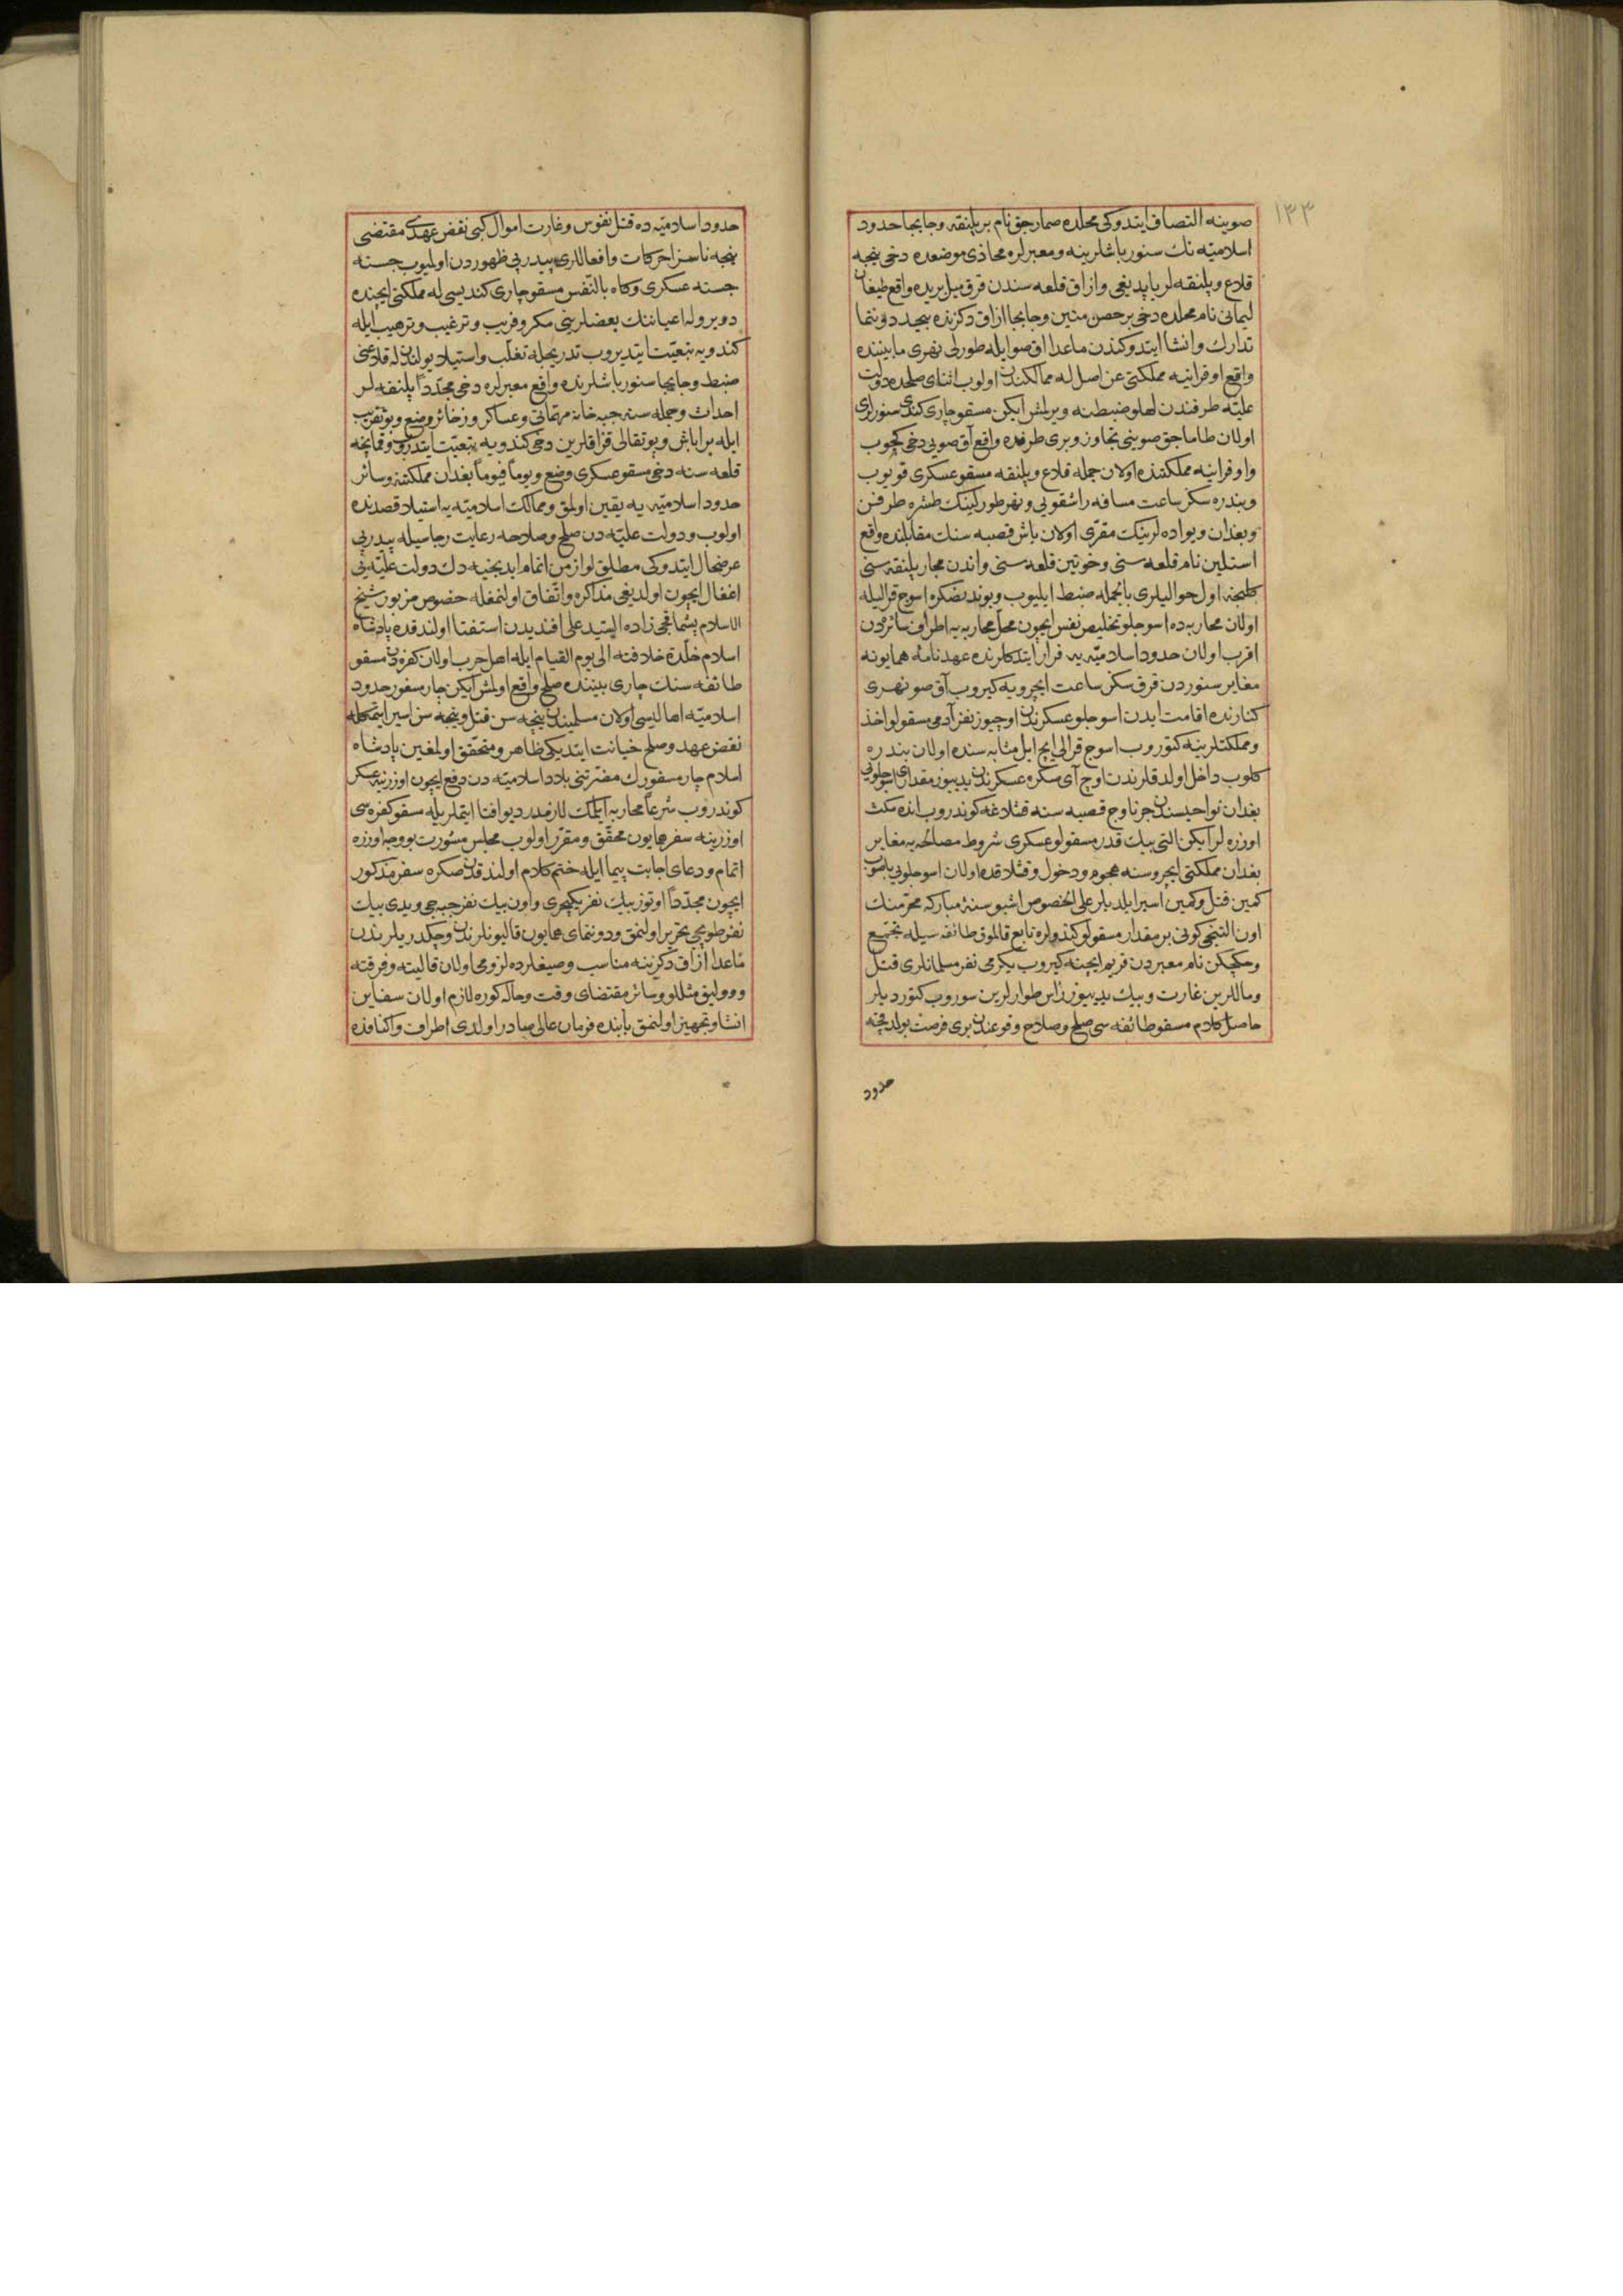 ١٣٣
صوینه التصاق ایتدوکی محلده صمارجق نام بر پلنقه وجابجا حدود
اسلامیّه نك سنور باشلرینه ومعبرلره محاذی موضعده دخی نیجه
قلاع وپلنقه لر یاپدیغی وازاق قلعه سندن قرق میل یریده واقع طیغان
لیمانی نام محلده دخی بر حصن متین وجابجا ازاق دکزنده بیحد دوننما
تدارك وانشا ایتدوکندن ماعدا اق صو ایله طورلی نهری مابیننده
واقع اوقرانیه مملکتی عن اصل له ممالکندن اولوب اثنای صلحده دولت
علیّه طرفندن لهلو ضبطنه ویرلمش ایکن مسقو چاری کندی سنورلری
اولان طاماجق صوینی تجاوز وبری طرفده واقع آق صویی دخی کچوب
واوقرانیه مملکتنده اولان جمله قلاع وپلنقه مسقو عسکری قویوب
وبندره سکز ساعت مسافه راشقویی ونهر طورلینك طشره طرفنن
وبغدان ویواده لرینك مقرّی اولان یاش قصبه سنك مقابلنده واقع
استلین نام قلعه سنی وخوتین قلعه سنی واندن مجار پلنقه سنی
کلنجه اول حوالیلری بالجمله ضبط ایلیوب وبوندنصکره اسوج قرالیله
اولان محاربه ده اسوجلو تخلیص نفس ایچون محل محاربه یه اطراف سائره دن
اقرب اولان حدود اسلامیّه یه فرار ایتدکلرنده عهدنامهٔ همایونه
مغایر سنوردن قرق سکز ساعت ایچرویه کیروب آق صو نهری
کنارنده اقامت ایدن اسوجلو عسکرندن اوچیوز نفر آدمی مسقولو اخذ
ومملکتلرینه کتوروب اسوج قرالی ایچ ایل مثابه سنده اولان بندره
کلوب داخل اولدقلرندن اوچ آی صکره عسکرندن یدییوز مقداری اسوجلویی
بغدان نواحیسندن جرناوج قصبه سنه قشلاغه کوندروب انده مکث
اوزره لر ایکن التی بیك قدر مسقولو عسکری شروط مصالحه یه مغایر
بغدان مملکتی ایچروسنه هجوم ودخول وقشلاقده اولان اسوجلویی باصوب
کمین قتل وکمین اسیر ایلدیلر علی الخصوص اشبو سنهٔ مبارکه محرّمنك
اون التنجی کونی بر مقدار مسقولو کندولره تابع قالموق طائفه سیله مجتمع
وچکچکن نام معبردن قریم ایچنه کیروب یکرمی نفر مسلمانلری قتل
وماللرین غارت وبیك یدییوز رٔاس طوارلرین سوروب کتوردیلر
حاصل کلام مسقو طائفه سی صلح وصلاح وقوعندن بری فرصت بولدقجه
حدود
حدود اسلامیّه ده قتل نفوس وغارت اموال کبی نقض عهدی مقتضی
نیجه ناسزا حرکات وافعاللری پیدرپی ظهوردن اولمیوب جسته
جسته عسکری وکاه بالنّفس مسقو چاری کندیسی له مملکتی ایچنده
دوبروله اعیاننك بعضلرینی مکر وفریب وترغیب وترهیب ایله
کندویه تبعیّت ایتدیروب تدریجله تغلّب واستیلا بولنان له قلاعنی
ضبط وجابجا سنور باشلرنده واقع معبرلره دخی مجدّداً پلنقه لر
احداث وجمله سنه جبه خانه مهمّاتی وعساکر وذخائر وضع وبو تقریب
ایله براباش وپوتقالی قزاقلرین دخی کندویه تبعیّت ایتدروب وقمانچه
قلعه سنه دخی مسقو عسکری وضع ویوماً فیوماً بغدان مملکتنه وسائر
حدود اسلامیّه یه یقین اولمق وممالك اسلامیّه یه استیلا قصدنده
اولوب ودولت علیّه دن صلح وصلاحه رعایت رجاسیله پیدرپی
عرضحال ایتدوکی مطلق لوازمن اتمام ایدنجیه دك دولت علیّه یی
اغفال ایچون اولدیغی مذاکره واتّفاق اولنمغله خصوص مزبور شیخ
الاسلام پشماقجی زاده السّید علی افندیدن استفتا اولندقده پادشاه
اسلام خلّدة خلافته الی یوم القیام ایله اهل حرب اولان کفره دن مسقو
طائفه سنك چاری بیننده صلح واقع اولمش ایکن چار مسفور حدود
اسلامیّه اهالیسی اولان مسلمیندن نیجه سن قتل ونیجه سن اسیر ایتمکله
نقض عهد وصلح خیانت ایتدیکی ظاهر ومتحقّق اولمغین پادشاه
اسلام چار مسفورك مضرّتنی بلاد اسلامیّه دن دفع ایچون اوزرینه عسکر
کوندروب شرعاً محاربه ایلمك لازمدر دیو افتا ایتملریله مسقو کفره سی
اوزرینه سفر همایون محقّق ومقرّر اولوب مجلس مشورت بو وجه اوزره
اتمام ودعای اجابت پیما ایله ختم کلام اولندقدن صکره سفر مذکور
ایچون مجدّداً اوتوز بیك نفر یکیچری واون بیك نفر جبه جی ویدی بیك
نفر طوپجی تحریر اولنمق ودوننمای همایون قالیونلرندن وچکدریلرندن
ماعدا ازاق دکزینه مناسب وصیغلرده لزومی اولان قالیته وفرقته
و ... مثللو وسائر مقتضای وقت وحاله کوره لازم اولان سفاین
انشا وتجهیز اولنمق بابنده فرمان عالی صادر اولدی اطراف واکنافده